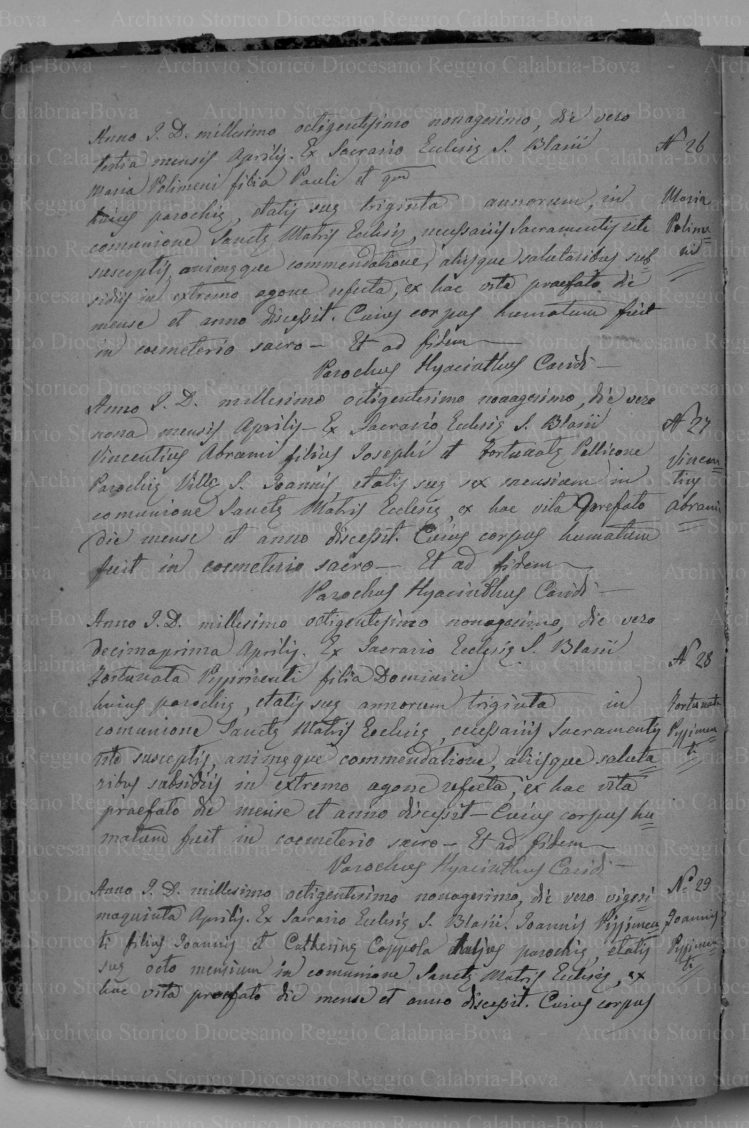 Anno J. D. millesimo octigentesimo nonagesimo, die vero
tertia mensis Aprilis. Ex Sacrario Eclesię S. Blasii
Maria Polimeni filia Pauli et qm
huius parochię, etatis suę triginta annorum, in
comunione Sanctę Matris Eclesię, necessariis Sacramentis rite
susceptis, animęque commendatione, aliisque salutaribus sub=
sidiis in extremo agone refecta, ex hac vita praefato die
mense et anno discessit. Cuius corpus humatum fuit
in coemeterio sacro — Et ad fidem —
Parochus Hyacinthus Caridi —
N 26
Maria
Polime=
ni
Anno J. D. millesimo octigentesimo nonagesimo, die vero
nona mensis Aprilis — Ex Sacrario Eclesię S. Blasii
Vincentius Abrami filius Josephi et Fortunatę Pellicone
Parochię Villę S. Joannis, etatis suę sex mensium in
comunione Sanctę Matris Eclesię, ex hac vita prefato
die mense et anno discessit. Cuius corpus humatum
fuit in coemeterio sacro — Et ad fidem —
Parochus Hyacinthus Caridi —
N 27
Vincen=
tius
Abrami
Anno J. D. millesimo octigentesimo nonagesimo, die vero
decimaprima Aprilis. Ex Sacrario Eclesię S. Blasii
Fortunata filia Dominici
huius parochię, etatis suę annorum triginta in
comunione Sanctę Matris Eclesię, necessariis Sacramentis
rite susceptis, animęque commendatione, aliisque saluta=
ribus subsidiis in extremo agone refecta, ex hac vita
praefato die mense et anno discessit — Cuius corpus hu=
matum fuit in coemeterio sacro — Et ad fidem —
Parochus Hyacinthus Caridi —
N 28
Fortunata
Anno J. D. millesimo octigentesimo nonagesimo, die vero vigesi
maquinta Aprilis. Ex Sacrario Eclesię S. Blasii. Joannis
ti filius Joannis et Catherinę Coppola huius parochię, etatis
suę octo mensium in comunione Sanctę Matris Eclesię, ex
hac vita praefato die mense et anno discessit. Cuius corpus
N.° 29
Joannis
Archivio Storico Diocesano Reggio Calabria-Bova